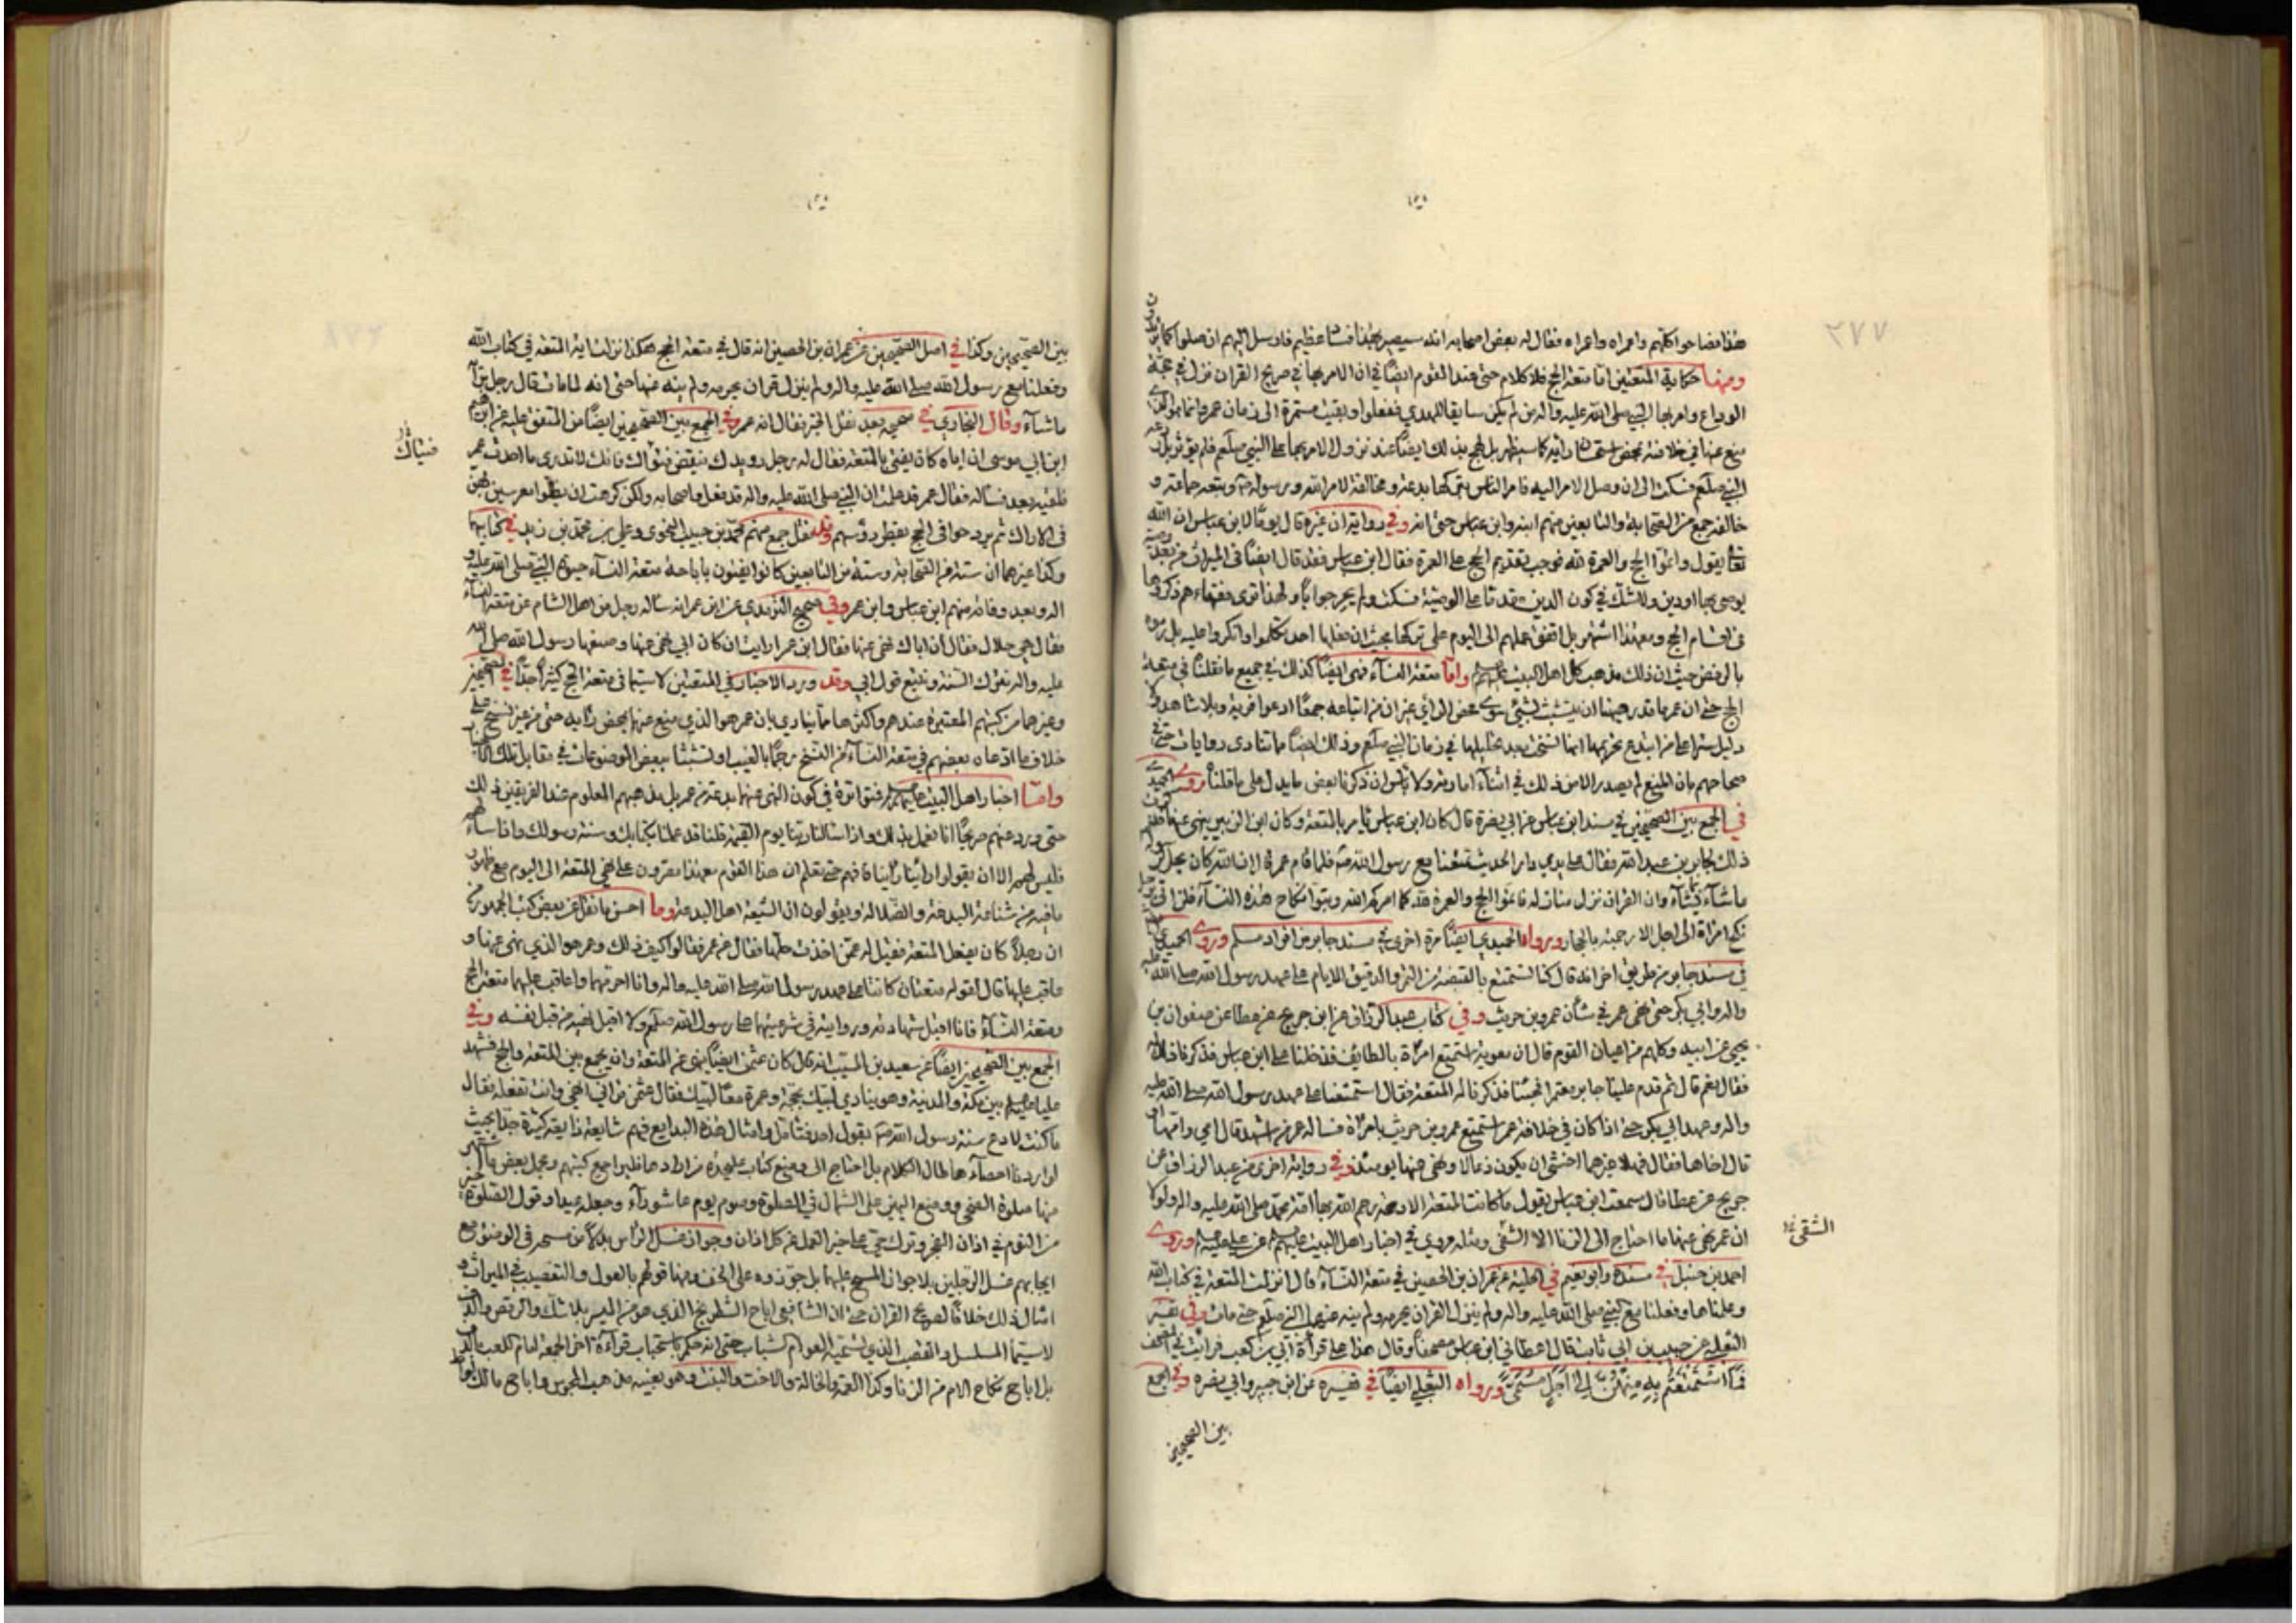 هذا فضاحوا كلهم واعمراه واعمراه فقال له بعض اصحابه انه سيصير بهذا فسادا عظيم فارسل اليهم ان صلوا كما كنتم تصلون
ومنها حكاية المتعتين اما متعة الحج فلا كلام حتى عند القوم ايضا في ان الامر بها في صريح القران نزل في حجة
الوداع وامر بها النبي صلى الله عليه واله من لم يكن سايقا للهدي ففعلوا وبقيت مستمرة الى زمان عمر
منع عنها في خلافته بمحض رايه كما سيظهر بل لهج بذلك ايضا عند نزول الامر بها على النبي صلعم فلم يؤثر
النبي صلعم فسكت الى ان وصل الامر اليه فامر الناس بتركها بدعة ومخالفة لامر الله ورسوله وتبعه جماعة و
خالفه جمع من الصحابة والتابعين منهم ابنه وابن عباس حتى انه وفي رواية ان عروة قال يوما لابن عباس ان الله
يقول واتموا الحج والعمرة لله فوجب تقديم الحج على العمرة فقال ابن عباس فقد قال ايضا في الميراث من بعد وصية
يوصى بها او دين ولا شك في كون الدين مقدما على الوصية فسكت ولم يحر جوابا ولهذا ترى فقهاءهم ذكروها
في اقسام الحج ومع هذا اشتهر بل اتفق عملهم الى اليوم على تركها بحيث ان فعلها احد تكلموا وانكروا عليه بل رموه
بالرفض حيث ان ذلك مذهب كل اهل البيت عليهم واما متعة النساء فهي ايضا كذلك في جميع ما نقلنا في متعة
الحج حتى ان عمر ما قدر هيهنا ان يتشبث بشيء سوى محض الراي غير ان من اتباعه جمعا ادعوا فرية وبلا شاهد ولا
دليل سترا على ما ابتدع بتحريمها انها نسخت بعد تحليلها في زمان النبي صلعم وذلك ايضا مما تنادى روايات حتى
صحاحهم بان المنع لم يصدر الا من ذلك في اثناء امارته ولا باس ان ذكرنا بعض ما يدل على ما قلنا روى الحميدي
في الجمع بين الصحيحين في مسند ابن عباس عن ابي نضرة قال كان ابن عباس يامر بالمتعة وكان ابن الزبير ينهى عنها فذكرت
ذلك لجابر بن عبد الله فقال على يدي دار الحديث تمتعنا مع رسول الله فلما قام عمر قال ان الله كان يحل لرسوله
ما شاء بما شاء وان القران نزل منازله فاتموا الحج والعمرة لله كما امركم الله وبتوا نكاح هذه النساء فلن اوتى برجل
نكح امراة الى اجل الا رجمته بالحجارة ورواه الحميدي ايضا مرة اخرى في مسند جابر من افراد مسلم وروى الحميدي
في مسند جابر من طريق اخر انه قال كنا نستمتع بالقبضة من التمر والدقيق الايام على عهد رسول الله صلى الله عليه
واله وابي بكر حتى نهى عمر في شان عمرو بن حريث وفي كتاب عبد الرزاق عن ابن جريج عن عطا عن صفوان بن
يحيى عن ابيه وكلهم من اعيان القوم قال ان معوية استمتع امراة بالطايف فدخلنا على ابن عباس فذكرنا له
فقال نعم قال ثم قدم علينا جابر معتمرا فجئنا فذكرنا له المتعة فقال استمتعنا على عهد رسول الله صلى الله عليه
واله وعهد ابي بكر حتى اذا كان في خلافة عمر استمتع عمرو بن حريث بامراة فساله عمر من اشهد قال امي وامها او
قال اخاها فقال فهلا غيرهما اخشى ان يكون دغالا ونهى عنها يومئذ وفي رواية اخرى من عبد الرزاق عن
جريج عن عطا قال سمعت ابن عباس يقول ما كانت المتعة الا رحمة رحم الله بها امة محمد صلى الله عليه واله ولولا
ان عمر نهى عنها ما احتاج الى الزنا الا الشقى ومثله مروي في اخبار اهل البيت عليهم عن علي عليه وروى
احمد بن حنبل في مسنده وابو نعيم في الحلية عن عمران بن الحصين في متعة النساء قال انزلت المتعة في كتاب الله
وعلمناها وفعلنا مع النبي صلى الله عليه واله ولم ينزل القران بحرمه ولم ينه عنها النبي صلعم حتى مات وفي تفسير
الثعلبي عن حبيب بن ابي ثابت قال اعطاني ابن عباس مصحفا وقال هذا على قراءة ابي بن كعب فرايت في المصحف
فما استمتعتم به منهن الى اجل مسمى ورواه الثعلبي ايضا في تفسيره عن ابن جبير وابي نضرة وفي الجمع
بين الصحيحين
الشقى
بين الصحيحين وكذا في اصل الصحيحين عن عمران بن الحصين انه قال في متعة الحج هكذا نزلت اية المتعة في كتاب الله
وفعلنا مع رسول الله صلى الله عليه واله ولم ينزل قران بحرمه ولم ينه عنها حتى انه لما مات قال رجل برايه
ما شاء وقال البخاري في صحيحه بعد نقل الخبر يقال انه عمر وفي الجمع بين الصحيحين ايضا من المتفق عليه عن ابراهيم
ابن ابي موسى ان اباه كان يفتي بالمتعة فقال له رجل رويدك ببعض فتياك فانك لا تدري ما احدث عمر
فلقيه بعد فساله فقال عمر قد علمت ان النبي صلى الله عليه واله قد فعل واصحابه ولكن كرهت ان يظلوا معرسين بهن
في الاراك ثم يروحوا في الحج يقطر رؤسهم وقد نقل جمع منهم محمد بن حبيب النحوي وعلي بن محمد بن زيد في كتابيهما
وكذا غيرهما ان ستة من الصحابة وستة من التابعين كانوا يفتون باباحة متعة النساء حيوة النبي صلى الله عليه و
اله وبعد وفاته منهم ابن عباس وابن عمر وفي صحيح الترمذي عن ابن عمر انه ساله رجل من اهل الشام عن متعة النساء
فقال هي حلال فقال ان اباك نهى عنها فقال ابن عمر ارايت ان كان ابي نهى عنها وصنعها رسول الله صلى الله
عليه واله نترك السنة ونتبع قول ابي وقد ورد الاخبار في المتعتين لا سيما في متعة الحج كثيرا جدا في الصحيحين
وغيرهما من كتبهم المعتبرة عندهم واكثرها مما ينادي بان عمر هو الذي منع عنها بمحض رايه حتى من غير نسخ على
خلاف ما ادعاه بعضهم في متعة النساء من النسخ رجما بالغيب او تشبثا ببعض الموضوعات في مقابل تلك
واما اخبار اهل البيت عليهم فمتواترة في كون النهي عنهما بدعة من عمر بل مذهبهم المعلوم عند الفريقين ذلك
حتى ورد عنهم صريحا انا نعمل بذلك واذا سالنا ربنا يوم القيمة قلنا قد عملنا بكتابك وسنة رسولك واذا سالهم
فليس لهم الا ان يقولوا راينا راينا فافهم حتى تعلم ان هذا القوم مع هذا يصرون على نهي المتعة الى اليوم مع ظهور
ما فيه من شناعة البدعة والضلالة ويقولون ان الشيعة اهل البدعة وما احسن ما نقل عن بعض كتب الجمهور من
ان رجلا كان يفعل المتعة فقيل له عمن اخذت حلها فقال عن عمر فقالوا كيف ذلك وعمر هو الذي نهى عنها و
عاقب عليها قال لقوله متعتان كانتا على عهد رسول الله صلى الله عليه واله وانا احرمهما واعاقب عليهما متعة الحج
ومتعة النساء فانا اقبل شهادته وروايته في شرعيتهما على رسول الله صلعم ولا اقبل نهيه من قبل نفسه وفي
الجمع بين الصحيحين ايضا عن سعيد بن المسيب انه قال كان عثمن ايضا ينهى عن المتعة وان يجمع بين المتعة والحج فشهد
عليا عليه بين مكة والمدينة وهو ينادي لبيك بحجة وعمرة معا لبيك فقال عثمن تراني انهى وانت تفعله فقال
ما كنت لادع سنة رسول الله بقول احد فتامل وامثال هذه البدايع فيهم شايعة ذايعة كثيرة جدا بحيث
لو اردنا احصاءها طال الكلام بل احتاج الى وضع كتاب عليحدة من ارادها فليراجع كتبهم وعمل بعض
منها صلوة الضحى ووضع اليمنى على الشمال في الصلوة وصوم يوم عاشوراء وجعله عيدا وقول الصلوة خير
من النوم في اذان الفجر وترك حي على خير العمل عن كل اذان وجواز غسل الراس بدلا من مسحه في الوضوء مع
ايجابهم غسل الرجلين بلا جواز المسح عليهما بل جوزوه على الخف ومنها قولهم بالعول والتعصيب في الميراث و
امثال ذلك خلافا لصريح القران حتى ان الشافعي اباح الشطرنج الذي هو من الميسر بلا شك والرقص والدف
لا سيما المسلسل والقصب الذي تسميه العوام شباب حتى انه حكم باستحباب قراءة اخر الجمعة لمام اللعب بالدف
بل اباح نكاح الام من الزنا وكذا العمة والخالة والاخت والبنت وهو بعينه مذهب المجوس واباح مالك
فتياك